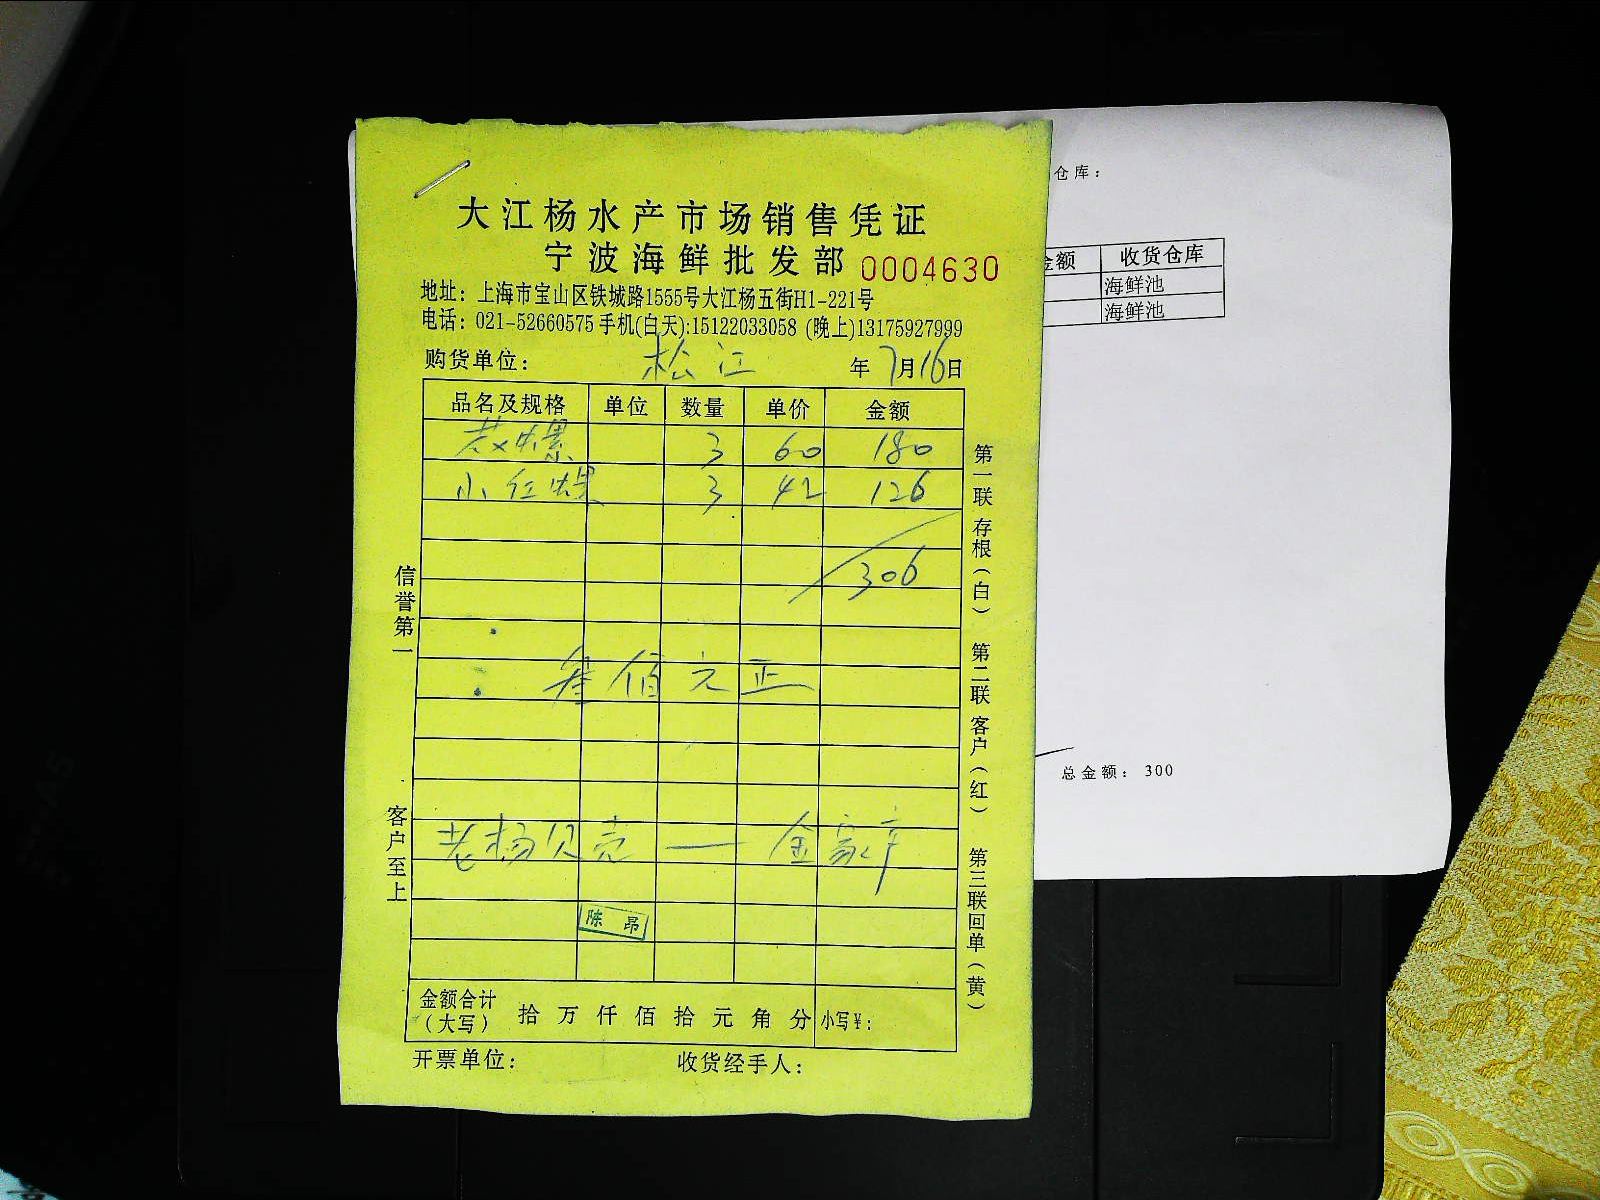 大江杨水产市场销售凭证
宁波海鲜批发部 0004630
地址：上海市宝山区铁城路1555号大江杨五街H1-221号
电话：021-52660575 手机(白天):15122033058 (晚上)13175927999
购货单位：松江 年7月16日
品名及规格 单位 数量 单价 金额
螺 3 60 180
小红 3 42 126
306
叁佰元正
老杨贝壳 — 金
陈昂
金额合计（大写） 拾万仟佰拾元角分 小写￥：
开票单位： 收货经手人：
信誉第一
客户至上
第一联存根（白） 第二联客户（红） 第三联回单（黄）
仓库：
金额 收货仓库
海鲜池
海鲜池
总金额：300